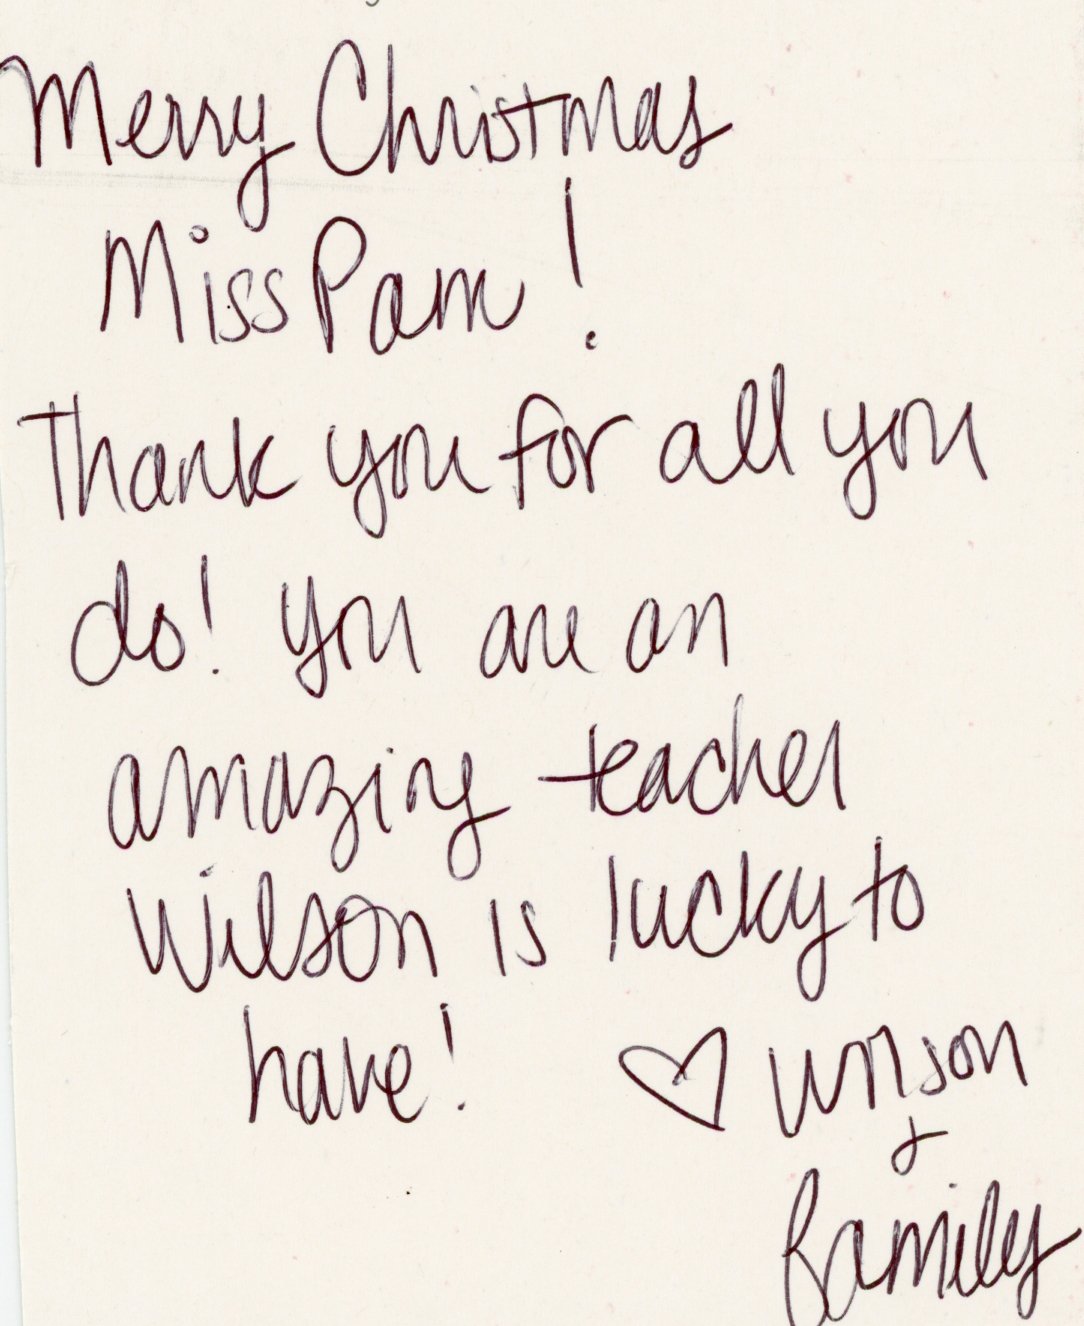 Merry Christmas
Miss Pam!
Thank you for all you
do! You are an
amazing teacher
Wilson is lucky to
have! ♡ Wilson
+
family